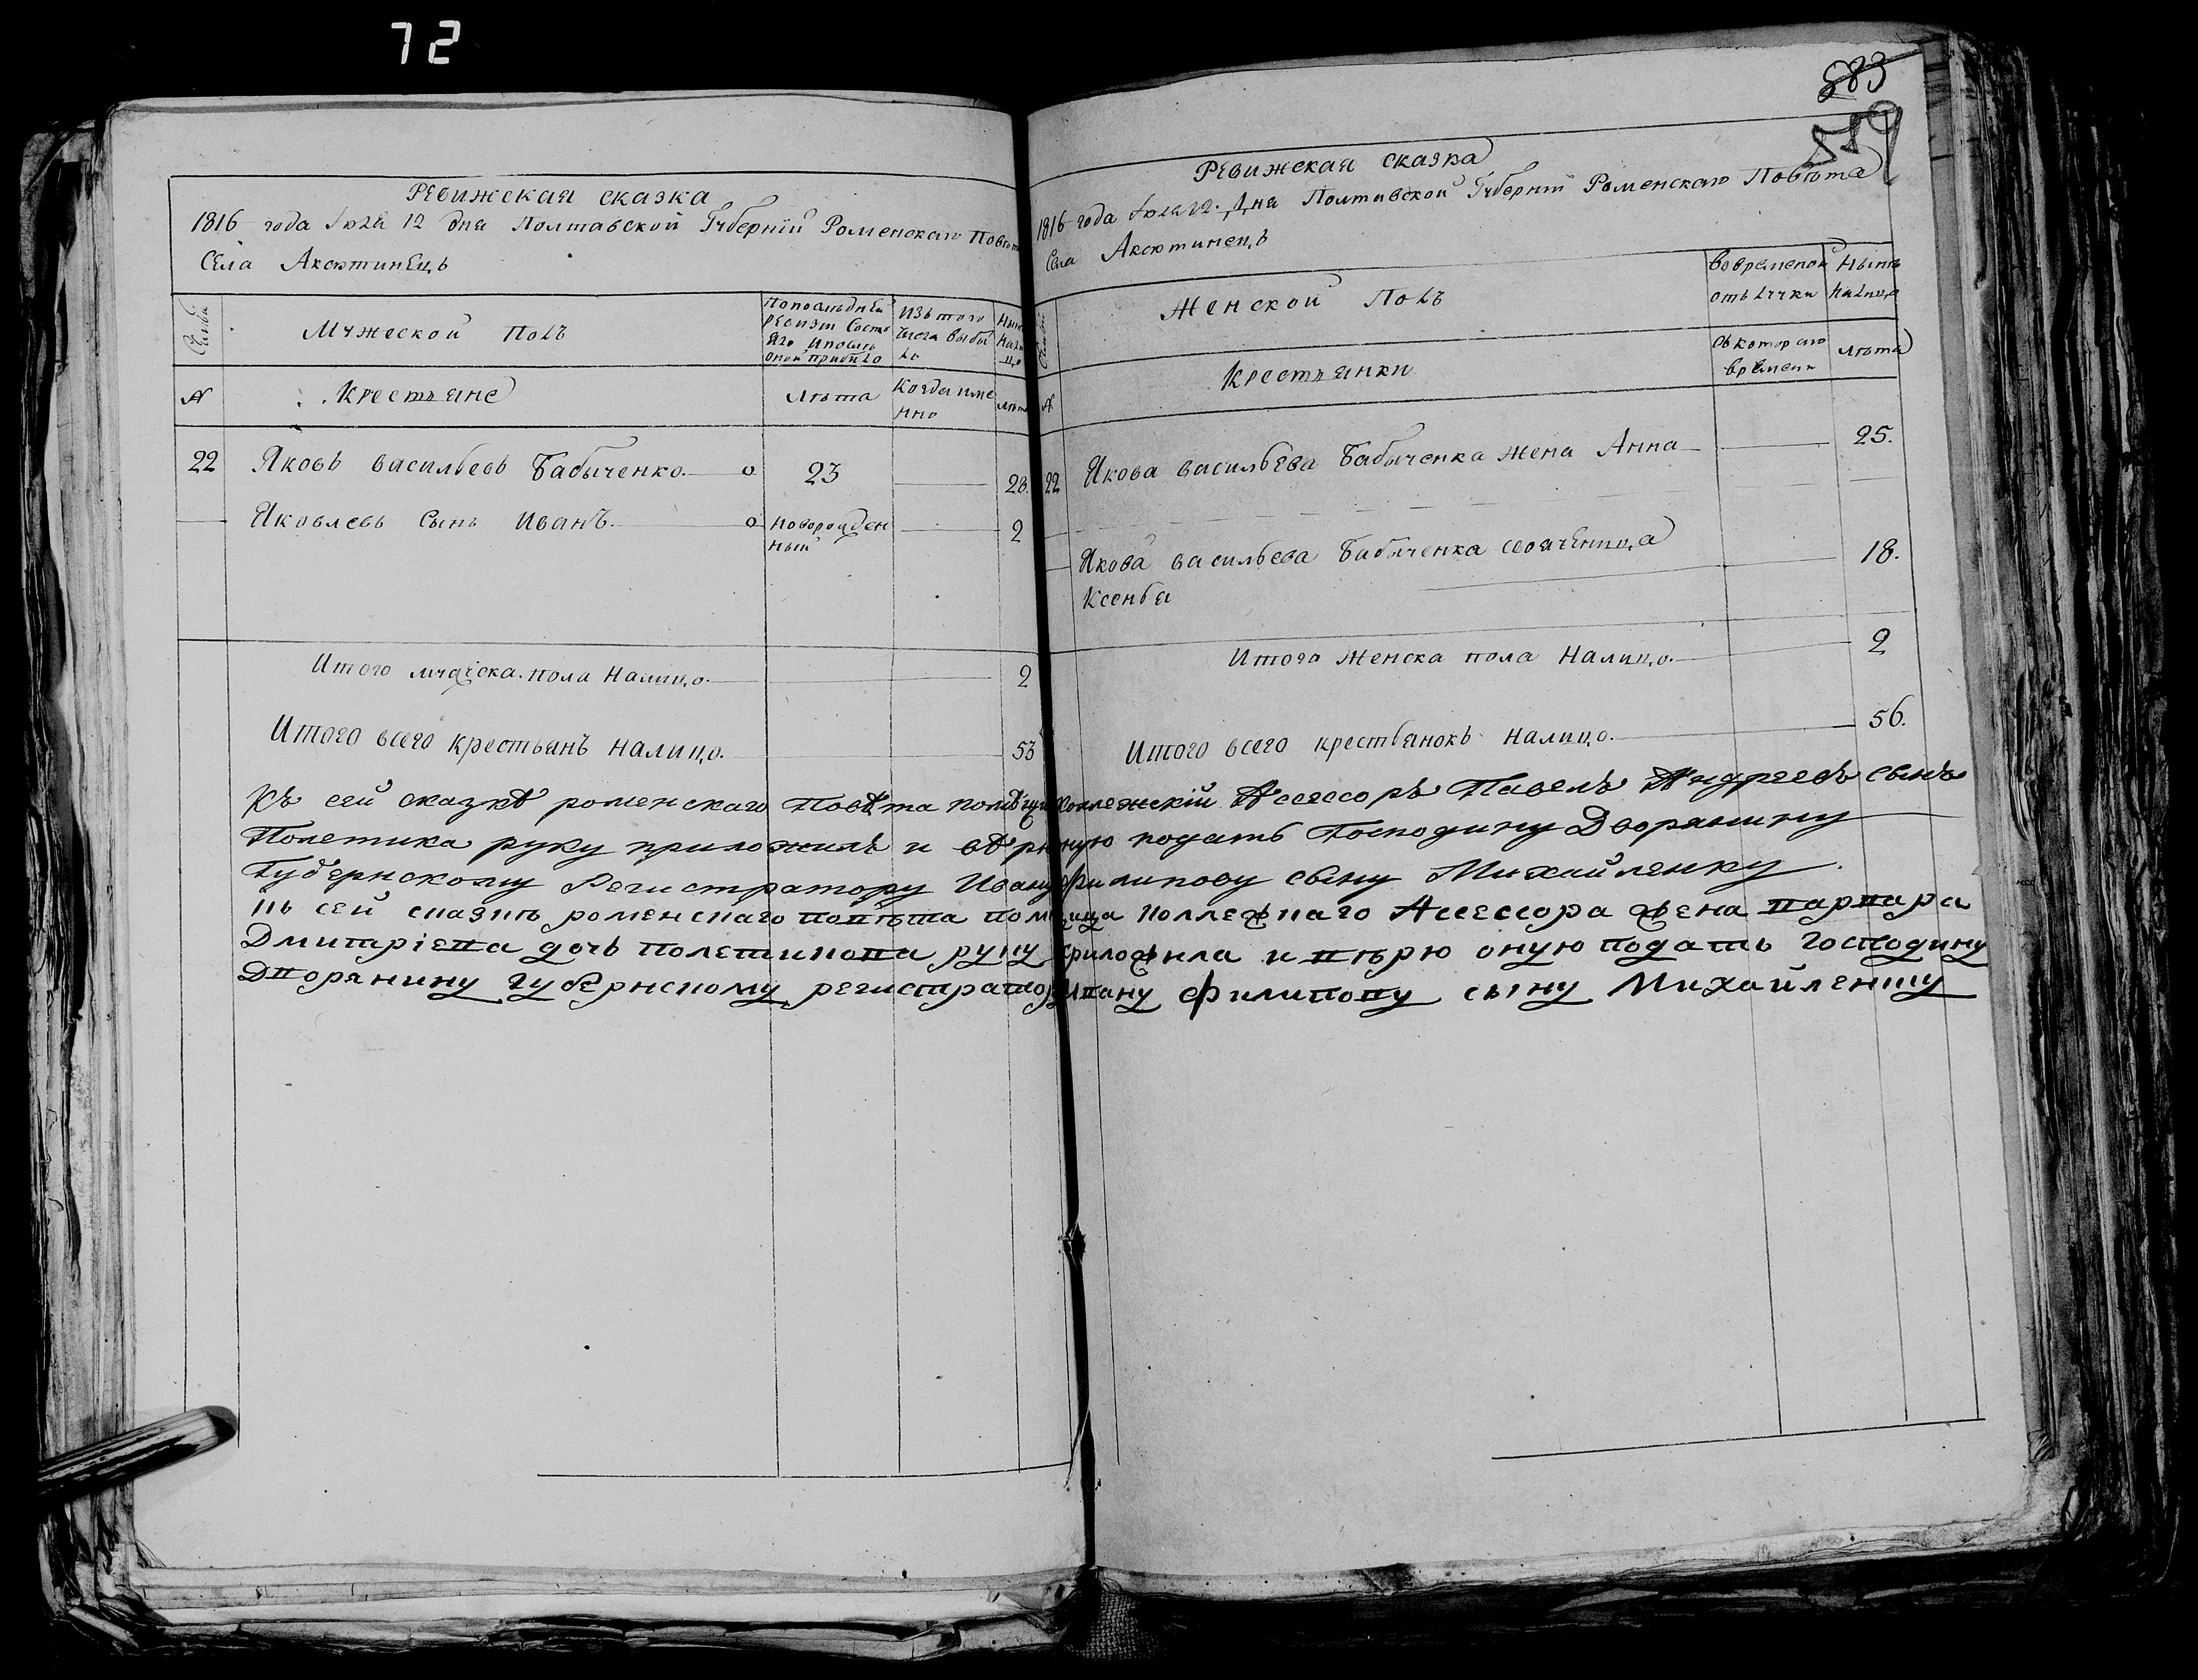 72
883
559
Ревижская сказка
1816 года Июля 12 дня Полтавской Губернїи Роменскаго Повѣта
Села Аксютинецъ
Мужеской Полъ
Попослѣдней
ревизіи Состо
яло ипослѣ
оной прибыло
Изътого
числа выбы
ло
Нынѣ
Нали
цо
№
Крестьяне
Лѣта
Когда име
нно
Лѣта
22 Яковъ васильевъ Бабыченко 23 28.
Яковлевъ Сынъ Иванъ Новорожден 2
ный
Итого мужеска пола Налицо 2
Итого всего крестьянъ налицо. 53
Ревижская сказка
1816 года Июля 12 Дня Полтавской Губернїи Роменскаго Повѣта
Села Аксютинецъ
Женской Полъ
Вовременой
отълучки
Нынѣ
налицо
№
Крестьянки
Съкотораго
времени
Лѣта
22 Якова васильева Бабыченка жена Анна 25.
Якова васильева Бабыченка своячЕница 18.
Ксенья
Итого Женска пола Налицо. 2
Итого всего крестьянокъ налицо. 56.
Къ сей сказкѣ роменскаго Повѣта помѣщикъ Коллежскій Асессоръ Павелъ Андреевъ сынъ
Полетика руку приложилъ и вѣрю оную подать Господину Дворянину
Губернскому Регистратору Ивану Филипову сыну Михайленку.
Къ сей сказкѣ роменскаго повѣта помѣщица коллежскаго Асессора жена варвара
Дмитріева дочь полетикова руку приложила и вѣрю оную подать господину
Дворянину губернскому регистратору Ивану Филипову сыну Михайленку